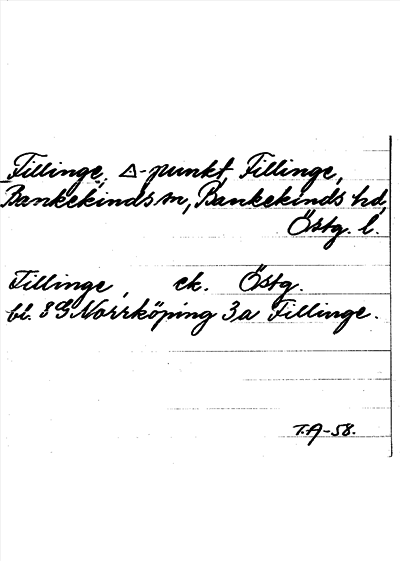 Fillinge, △-punkt, Fillinge,
Bankekinds sn, Bankekinds hd,
Östg. l.
Fillinge, ek. Östg.
bl. 8 G Norrköping 3a Fillinge.
T.A-58.